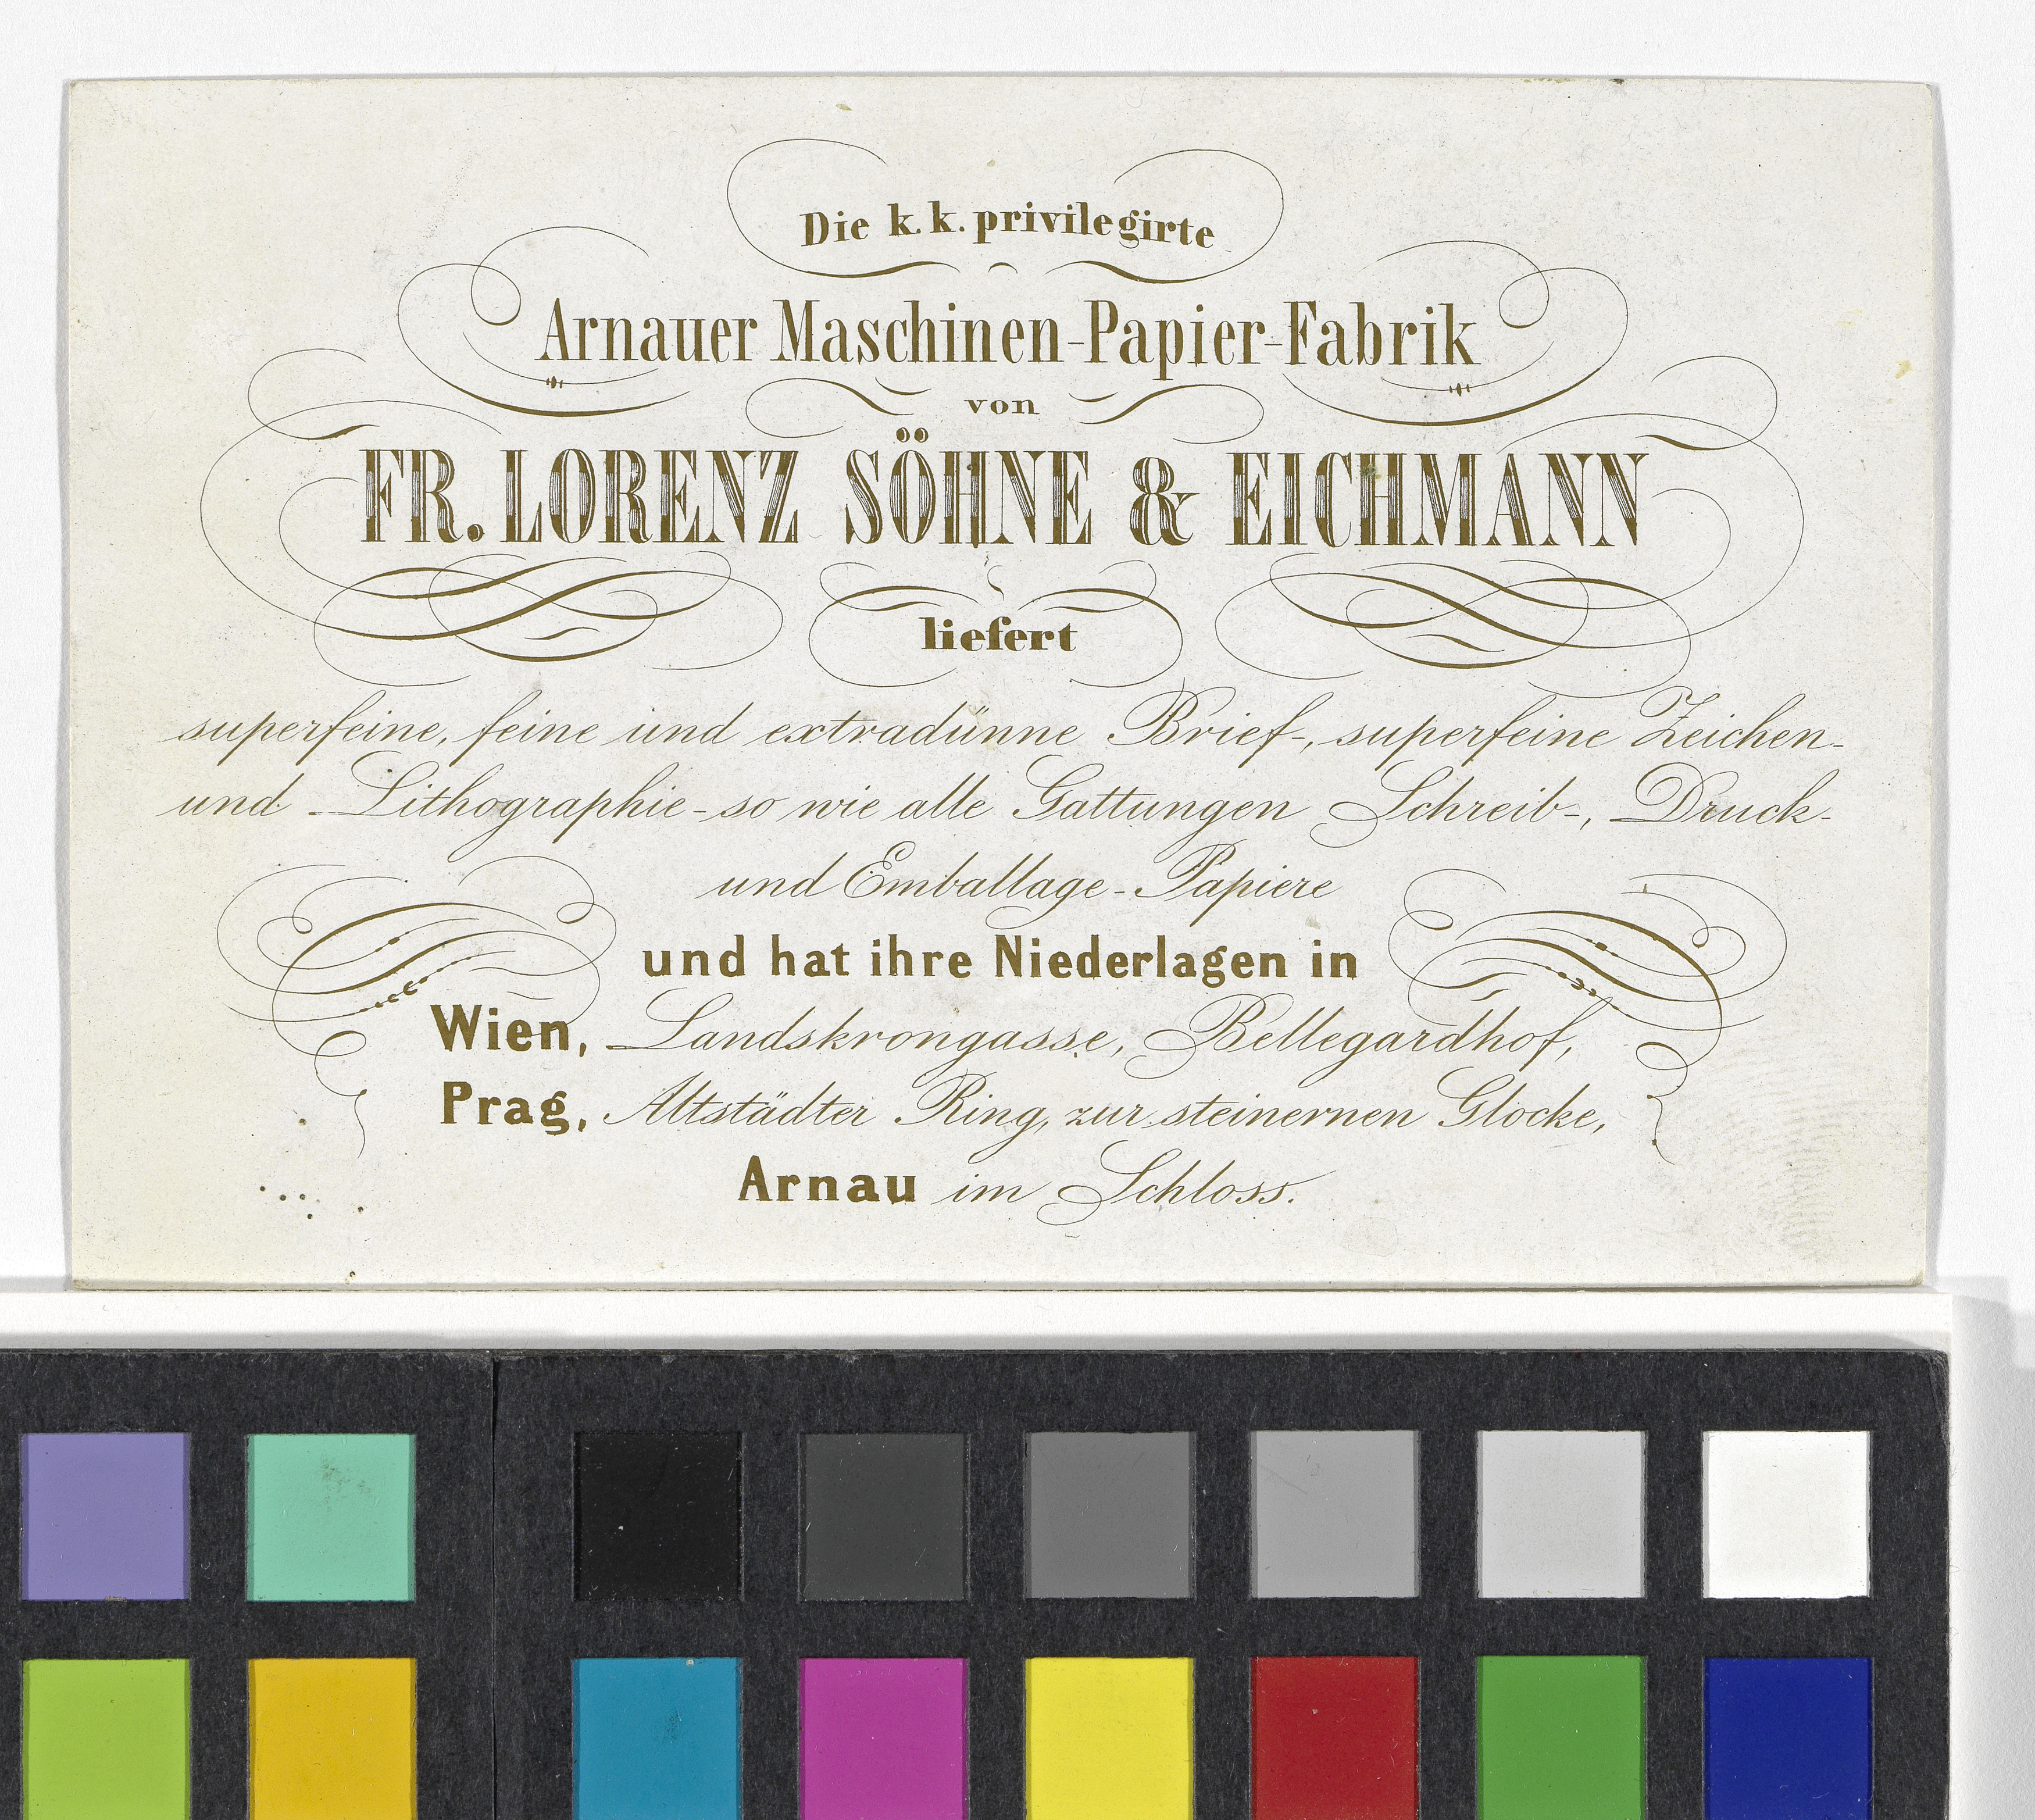 Die k. k. privilegirte
Arnauer Maschinen-Papier-Fabrik
von
FR. LORENZ SÖHNE & EICHMANN
liefert
superfeine, feine und extradünne Brief-, superfeine Zeichen-
und Lithographie- so wie alle Gattungen Schreib-, Druck-
und Emballage-Papiere
und hat ihre Niederlagen in
Wien, Landskrongasse, Bellegardhof,
Prag, Altstädter Ring, zur steinernen Glocke,
Arnau im Schloss.